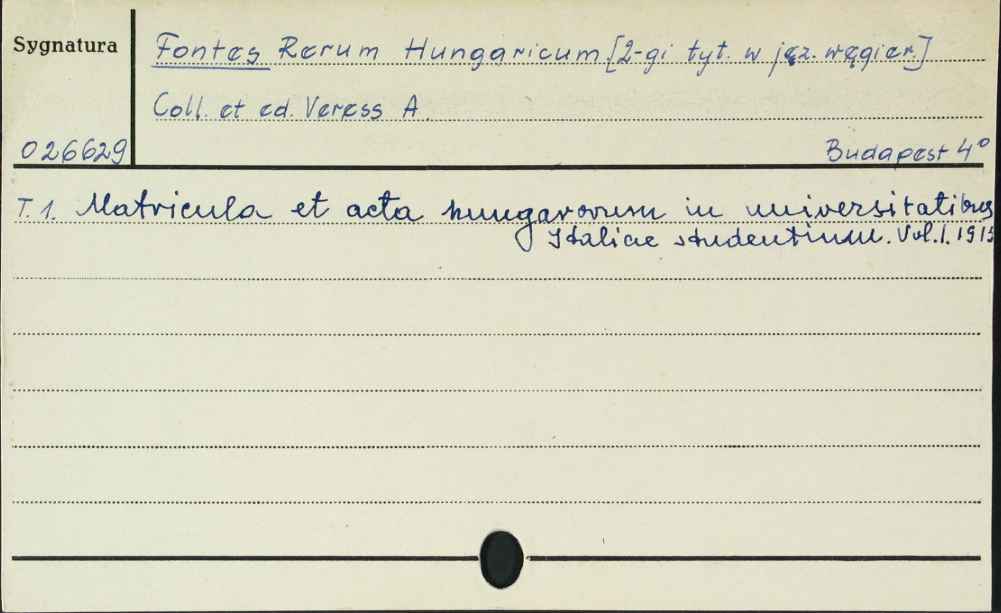 Sygnatura
Fontes Rerum Hungaricum [2-gi tyt. w jęz. węgier.]
Coll. et ed. Veress A.
026629
Budapest 4°
T. 1. Matricula et acta hungarorum in universitatibus
Italiae studentium. Vol. I. 1915